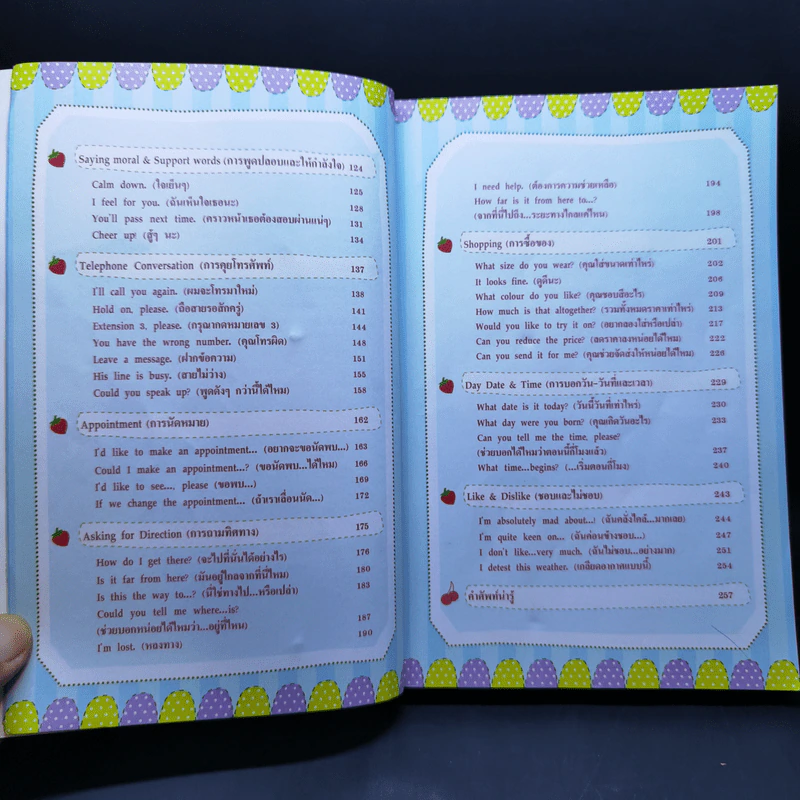 Saying moral & Support words (การพูดปลอบและให้กำลังใจ) 124
Calm down. (ใจเย็นๆ) 125
I feel for you. (ฉันเห็นใจเธอนะ) 128
You'll pass next time. (คราวหน้าเธอต้องสอบผ่านแน่ๆ) 131
Cheer up! (สู้ๆ นะ) 134
Telephone Conversation (การคุยโทรศัพท์) 137
I'll call you again. (ผมจะโทรมาใหม่) 138
Hold on, please. (ถือสายรอสักครู่) 141
Extension 3, please. (กรุณากดหมายเลข 3) 144
You have the wrong number. (คุณโทรผิด) 148
Leave a message. (ฝากข้อความ) 151
His line is busy. (สายไม่ว่าง) 155
Could you speak up? (พูดดังๆ กว่านี้ได้ไหม) 158
Appointment (การนัดหมาย) 162
I'd like to make an appointment... (อยากจะขอนัดพบ...) 163
Could I make an appointment...? (ขอนัดพบ...ได้ไหม) 166
I'd like to see...., please (ขอพบ...) 169
If we change the appointment... (ถ้าเราเลื่อนนัด...) 172
Asking for Direction (การถามทิศทาง) 175
How do I get there? (จะไปที่นั่นได้อย่างไร) 176
Is it far from here? (มันอยู่ไกลจากที่นี่ไหม) 180
Is this the way to...? (นี่ใช่ทางไป...หรือเปล่า) 183
Could you tell me where...is?
(ช่วยบอกหน่อยได้ไหมว่า...อยู่ที่ไหน) 187
I'm lost. (หลงทาง) 190
I need help. (ต้องการความช่วยเหลือ) 194
How far is it from here to...?
(จากที่นี่ไปถึง...ระยะทางไกลแค่ไหน) 198
Shopping (การซื้อของ) 201
What size do you wear? (คุณใส่ขนาดเท่าไหร่) 202
It looks fine. (ดูดีนะ) 206
What colour do you like? (คุณชอบสีอะไร) 209
How much is that altogether? (รวมทั้งหมดราคาเท่าไหร่) 213
Would you like to try it on? (อยากลองใส่หรือเปล่า) 217
Can you reduce the price? (ลดราคาลงหน่อยได้ไหม) 222
Can you send it for me? (คุณช่วยจัดส่งให้หน่อยได้ไหม) 226
Day Date & Time (การบอกวัน-วันที่และเวลา) 229
What date is it today? (วันนี้วันที่เท่าไหร่) 230
What day were you born? (คุณเกิดวันอะไร) 233
Can you tell me the time, please?
(ช่วยบอกได้ไหมว่าตอนนี้กี่โมงแล้ว) 237
What time...begins? (...เริ่มตอนกี่โมง) 240
Like & Dislike (ชอบและไม่ชอบ) 243
I'm absolutely mad about...! (ฉันคลั่งไคล้...มากเลย) 244
I'm quite keen on... (ฉันค่อนข้างชอบ...) 247
I don't like...very much. (ฉันไม่ชอบ...อย่างมาก) 251
I detest this weather. (เกลียดอากาศแบบนี้) 254
คำศัพท์น่ารู้ 257